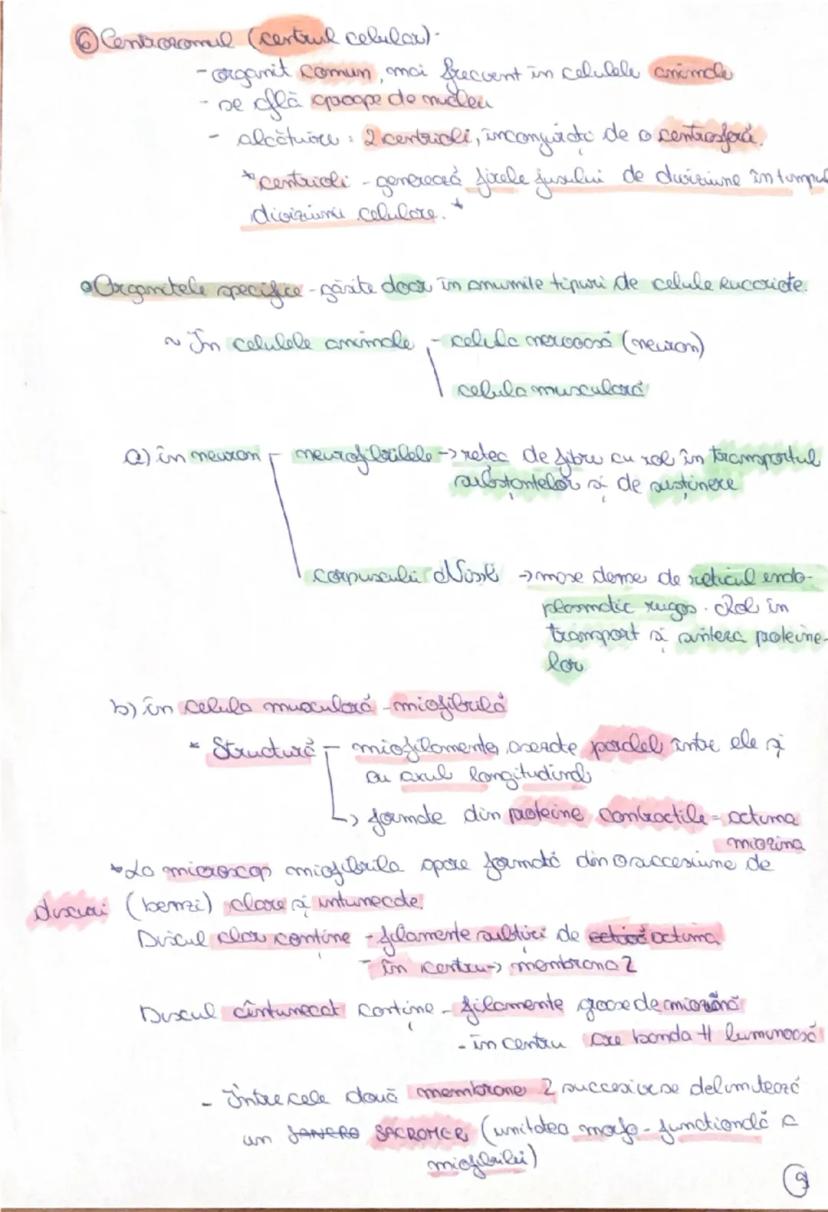 ⑥ Centrozomul (centrul celular)-
- organit comun, mai frecvent în celulele animale
- se află aproape de nucleu
- alcătuire: 2 centrioli, înconjurați de o centrosferă.
*centrioli - generează firele fusului de diviziune în timpul
diviziunii celulare.*
Organitele specifice - găsite doar în anumite tipuri de celule eucariote.
~ În celulele animale - celula nervoasă (neuron)
celula musculară
a) în neuron - neurofibrilele -> rețea de fibre cu rol în transportul
substanțelor și de susținere
corpusculi Nissl -> mase dense de reticul endo-
plasmatic rugos. Rol în
transport și sinteza proteine-
lor
b) în celula musculară - miofibrilă
* Structură - miofilamente, așezate paralel între ele și
cu axul longitudinal
-> formate din proteine contractile - actina
miozina
*La microscop miofibrila apare formată din o succesiune de
discuri (benzi) clare și întunecate.
Discul clar conține - filamente subțiri de actina
- în centru -> membrana Z
Discul întunecat conține - filamente groase de miozină
- în centru are banda H luminoasă
- Între cele două membrane Z succesive se delimitează
un SACROMER (unitatea morfo-funcțională a
miofibrilei)
9